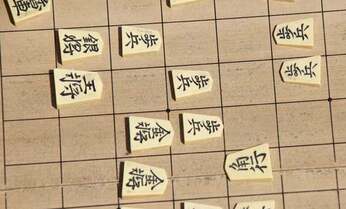 銀将
歩兵
歩兵
王将
歩兵
歩兵
金将
歩兵
金将
角行